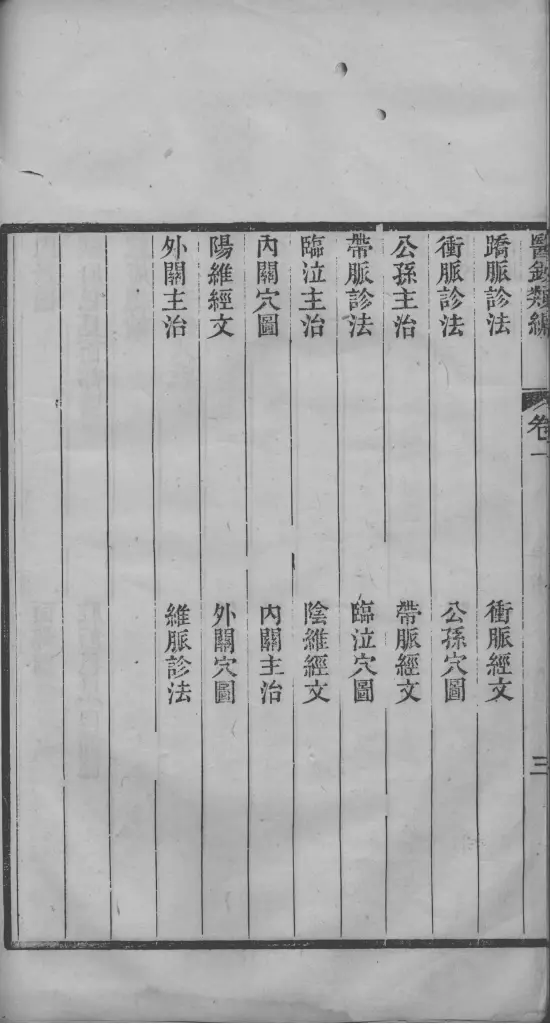 醫鈔類編
卷一
三
蹻脈診法
衝脈經文
衝脈診法
公孫穴圖
公孫主治
帶脈經文
帶脈診法
臨泣穴圖
臨泣主治
陰維經文
內關穴圖
內關主治
陽維經文
外關穴圖
外關主治
維脈診法